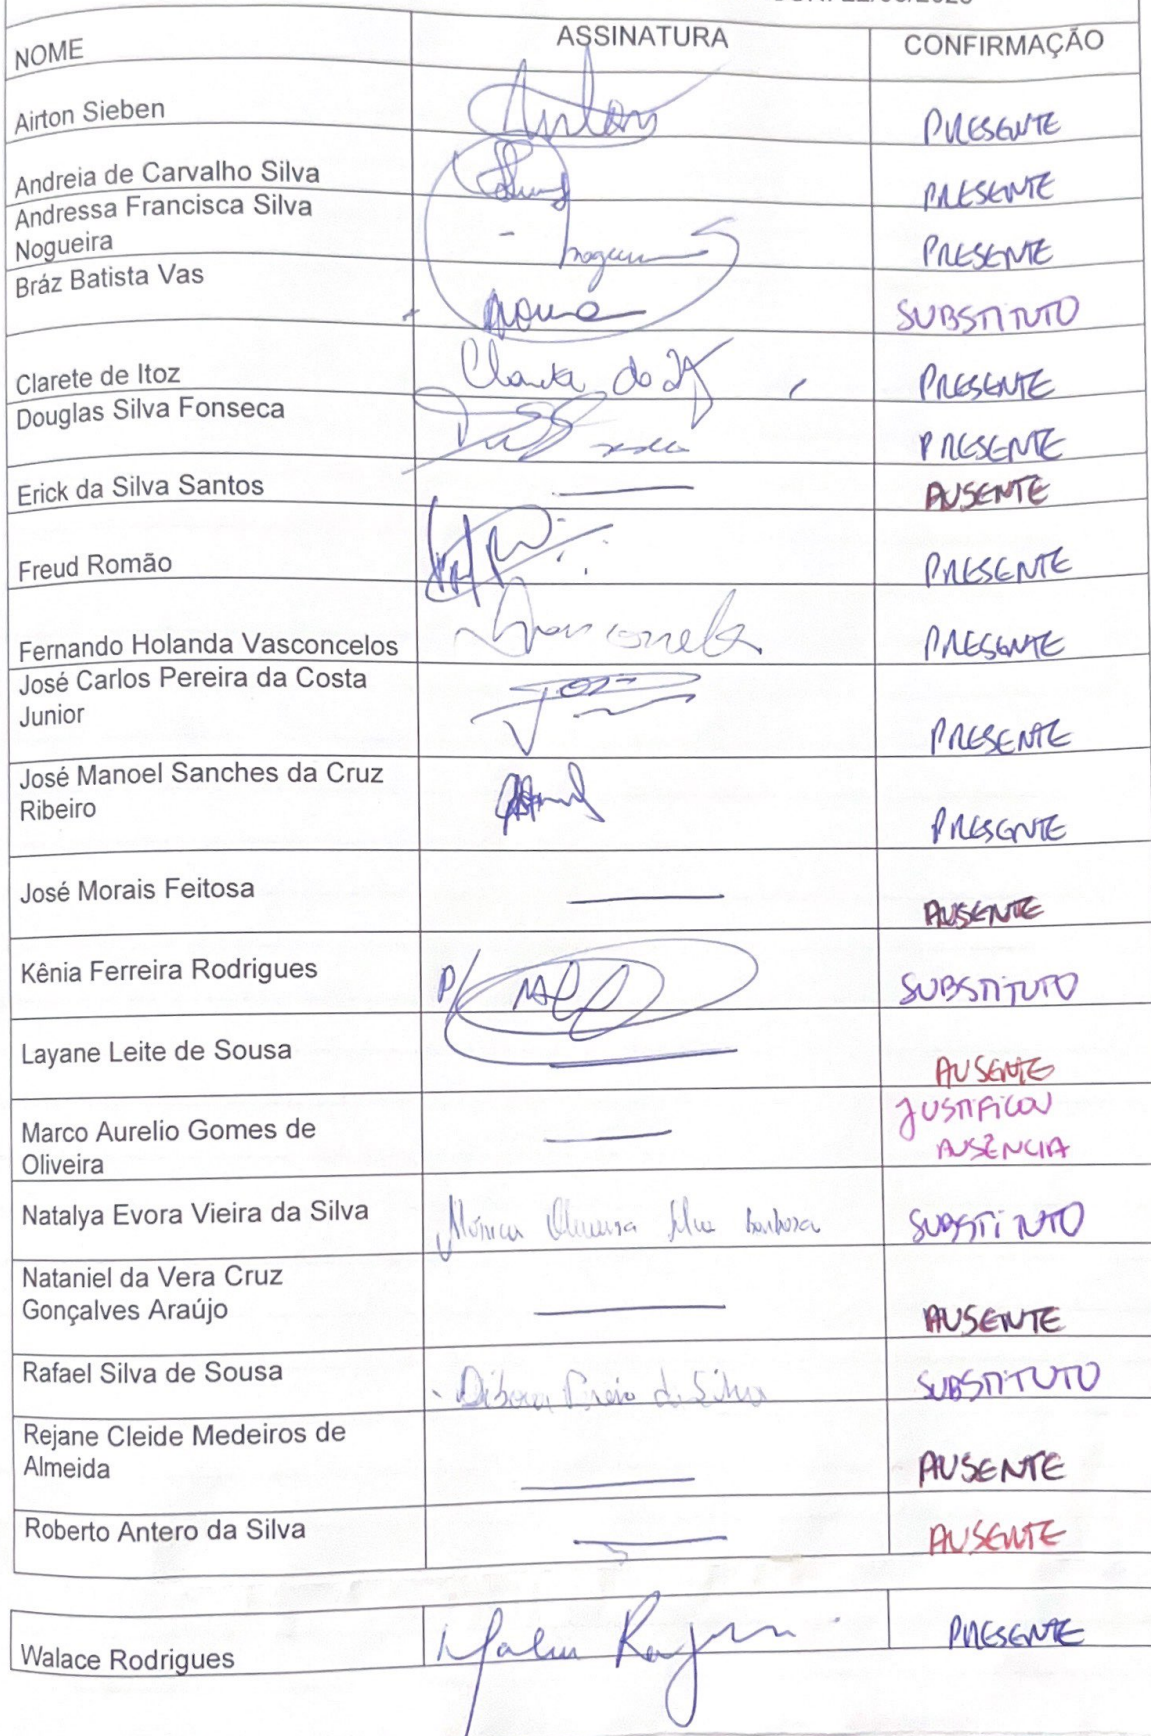 NOME ASSINATURA CONFIRMAÇÃO
Airton Sieben Airton PRESENTE
Andreia de Carvalho Silva PRESENTE
Andressa Francisca Silva
Nogueira PRESENTE
Bráz Batista Vas SUBSTITUTO
Clarete de Itoz PRESENTE
Douglas Silva Fonseca PRESENTE
Erick da Silva Santos AUSENTE
Freud Romão PRESENTE
Fernando Holanda Vasconcelos PRESENTE
José Carlos Pereira da Costa
Junior PRESENTE
José Manoel Sanches da Cruz
Ribeiro PRESENTE
José Morais Feitosa AUSENTE
Kênia Ferreira Rodrigues P/ SUBSTITUTO
Layane Leite de Sousa AUSENTE
Marco Aurelio Gomes de JUSTIFICOU
Oliveira AUSÊNCIA
Natalya Evora Vieira da Silva Mônica Silva Barbosa SUBSTITUTO
Nataniel da Vera Cruz
Gonçalves Araújo AUSENTE
Rafael Silva de Sousa da Silva SUBSTITUTO
Rejane Cleide Medeiros de
Almeida AUSENTE
Roberto Antero da Silva AUSENTE
Walace Rodrigues PRESENTE